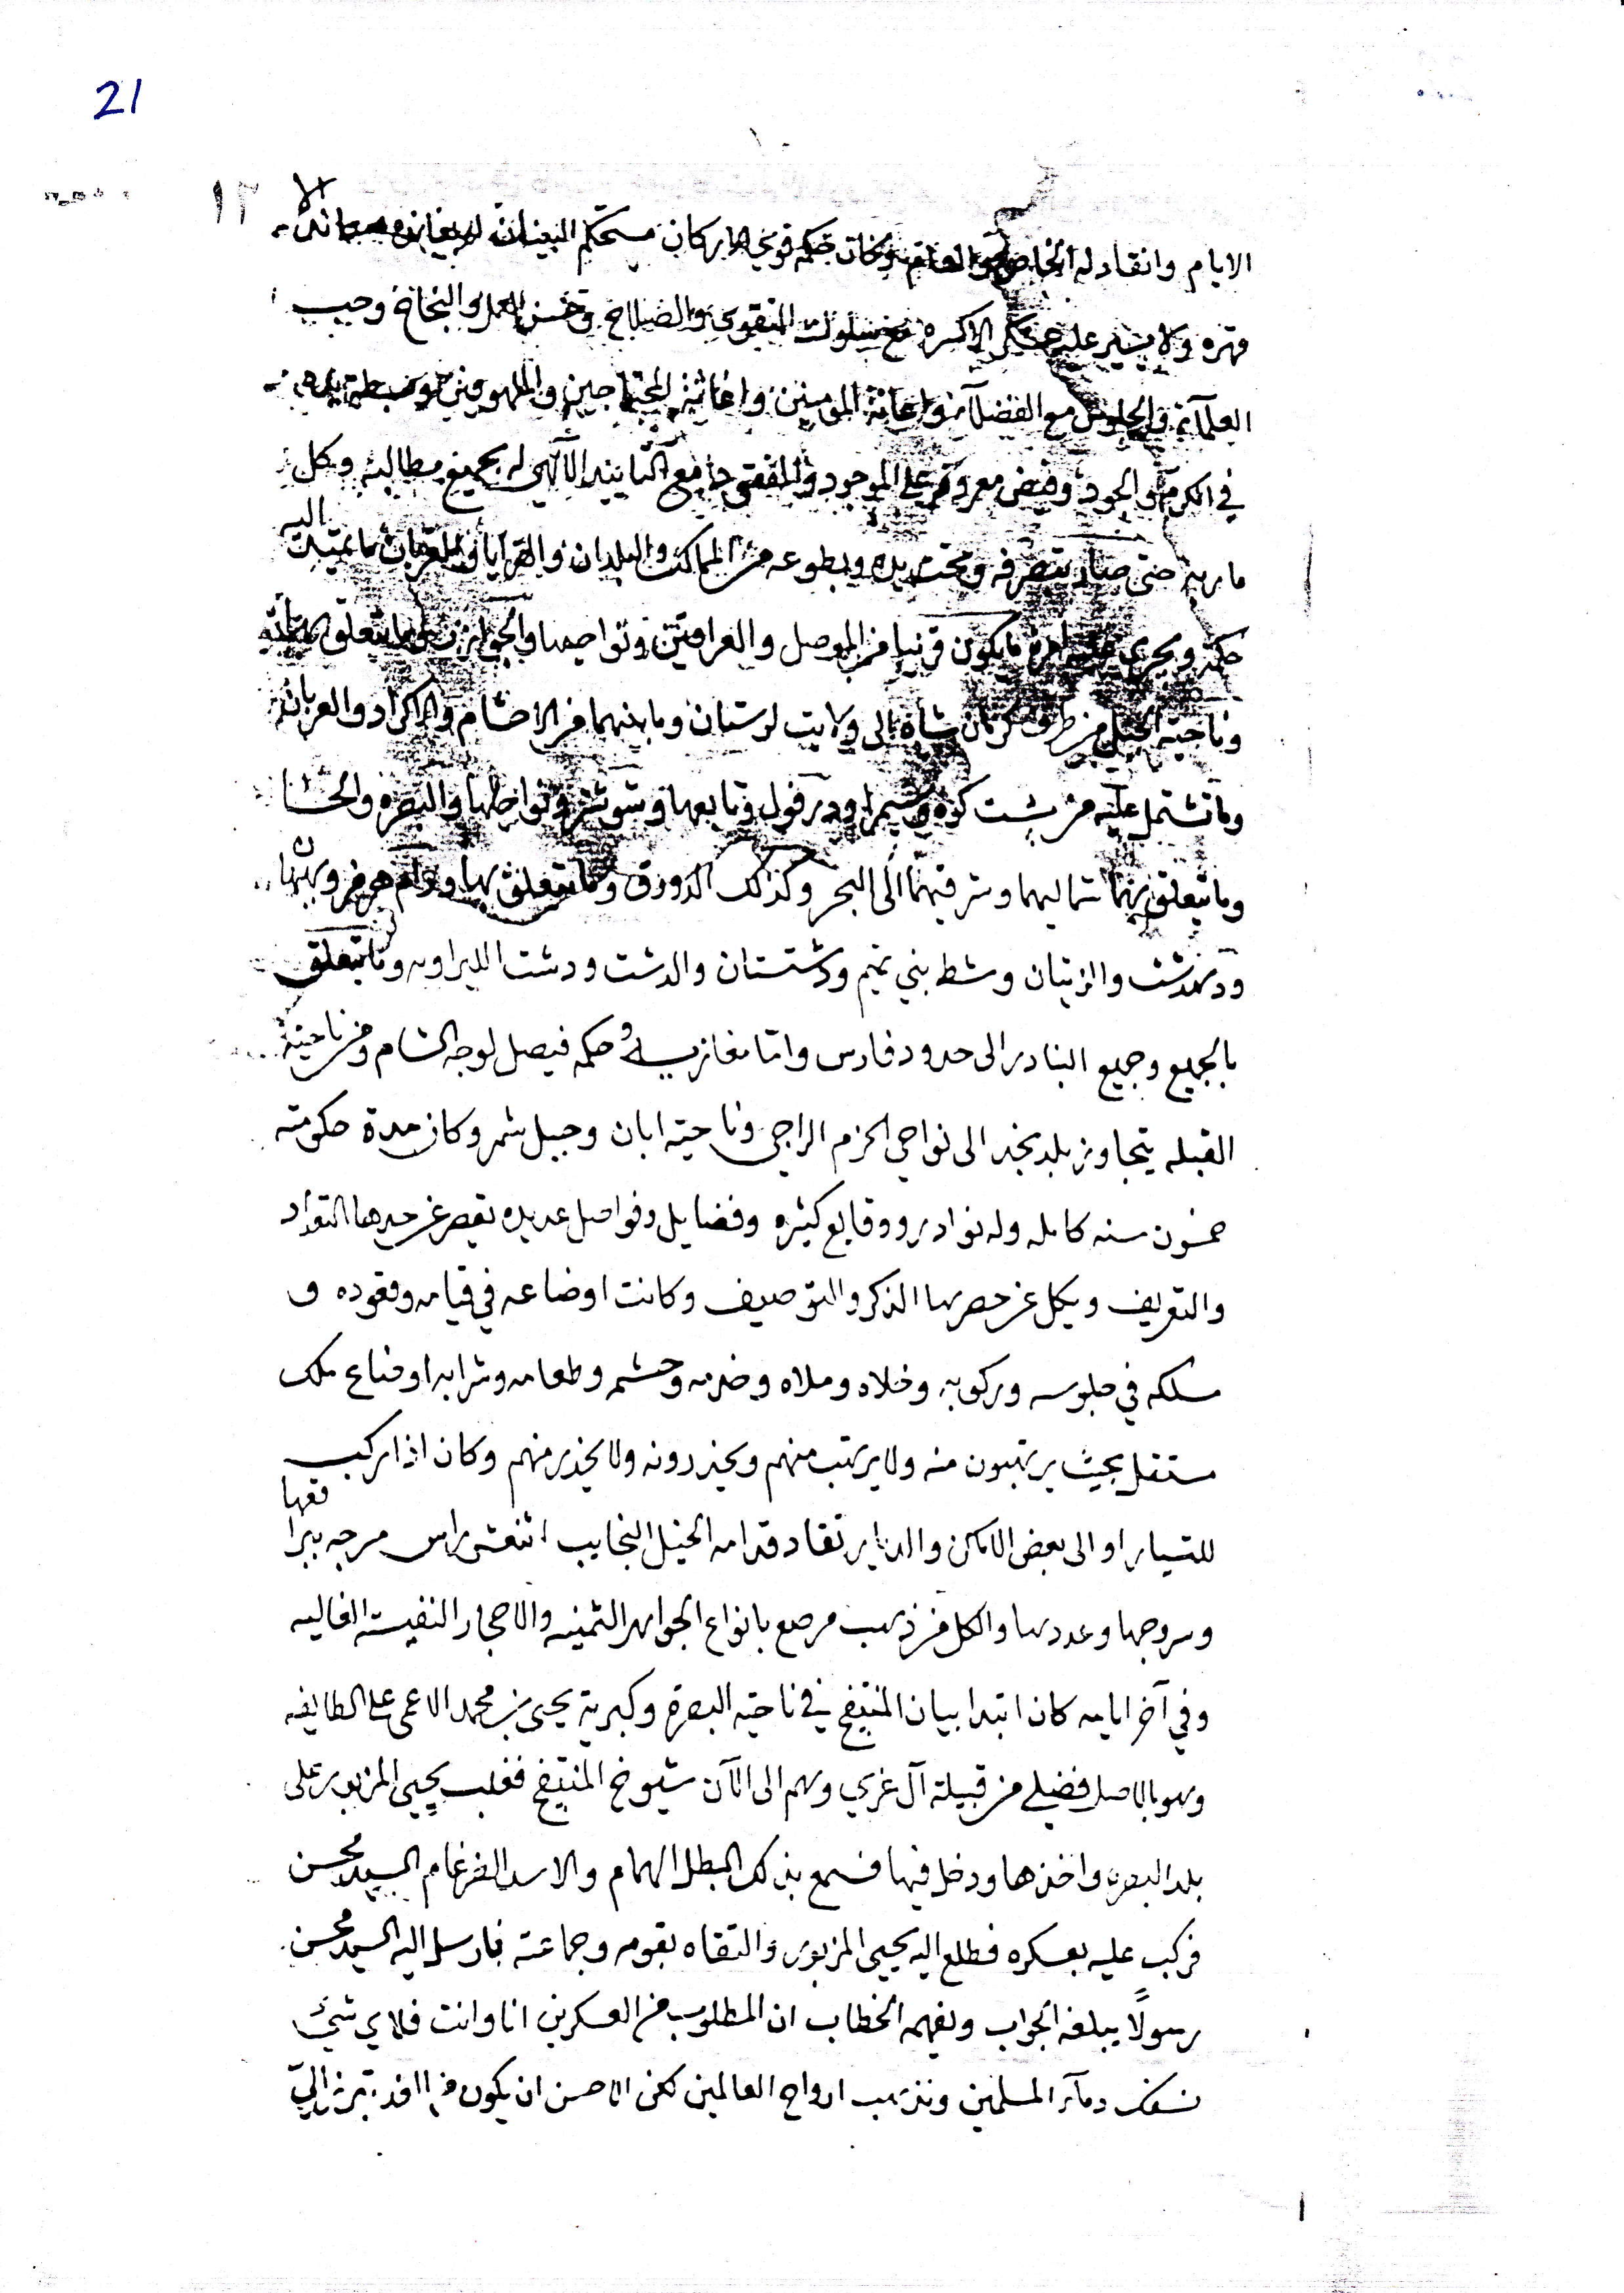 21
١٢
الايام وانقاد له الخاص والعام وكان حكمه قوي الاركان مستحكم البنيان لم يعانده معاند الا
قهره ولا يسير عليه عسكر الا كسره مع سلوك التقوى والصلاح وحسن العمل والنجاح وحب
العلمآء والجلوس مع الفضلآء واعانة المومنين واغاثة المحتاجين والملهوفين وبسط يده
في الكرم والجود وفيض معروفه على الموجود والمفقود مع التاييد الآلهي له بجميع مطالبه وكل
ماربه حتى صار بتصرفه وتحت يده وبطوعه من الممالك والبلدان والقرايا والعربان ما يمتد اليه
حكمه ويجري عليه امره ما يكون قريبا من الموصل والعراقين ونواحيها والجوازر وما يتعلق
وناحية الجبل من طرف كرمان شاه الى ولايت لرستان وما بينهما من الاحشام والاكراد والعربان
وما تشتمل عليه من پشت كوه ودزفول وتابعها وشوشتر ونواحيها والبصره والحسا
وما يتعلق بهما شماليهما وشرقيهما الى البحر وكذلك الدورق وما يتعلق بها ورام هرمز وبهبهان
ودهدشت والزيتان وشط بني تميم ودشتستان والدشت ودشت الليراوي وما يتعلق
بالجميع وجميع البنادر الى حدود فارس واما مغازيه وحكمه فيصل لوجه الشام ومن ناحية
القبله يتجاوز بلد نجد الى نواحي الحزم الراجي وناحية ابان وجبل شمر وكان مدة حكومته
خمسون سنه كامله وله نوادر ووقايع كثيره وفضايل وفواضل عديده يقصر عن حدها التعداد
والتعريف ويكل عن حصرها الذكر والتوصيف وكانت اوضاعه في قيامه وقعوده و
سلكه في جلوسه وركوبه وخلاه وملاه وخدمه وحشمه وطعامه وشرابه اوضاع ملك
مستقل بحيث يرتهبون منه ولا يرتهب منهم ويحذرونه ولا يحذر منهم وكان اذا ركب
للتسيار او الى بعض الاماكن والداير تقاد قدامه الخيل النجايب اثنعش راس مسرجه ببراقعها
وسروجها وعددها والكل من ذهب مرصع بانواع الجواهر الثمينه والاحجار النفيسة الغاليه
وفي آخر ايامه كان ابتدا بيان المنتفج في ناحية البصرة وكبرية يحيى بن محمد الاعمى على الطايفه
وهو بالاصل فضيلي من قبيلة آل غزي وهم الى الآن شيوخ المنتفج فغلب يحيى المزبور على
بلد البصره واخذها ودخل فيها فسمع بذلك البطل الهمام والاسد الضرغام السيد محسن
فركب عليه بعسكره فطلع اليه يحيى المزبور والتقاه بقومه وجماعته فارسل اليه السيد محسن
رسولاً يبلغه الجواب ويفهمه الخطاب ان المطلوب من العسكرين انا وانت فلاي شيء
نسفك دمآء المسلمين ونذهب ارواح العالمين لكن الاحسن ان يكون تبرز اليّ